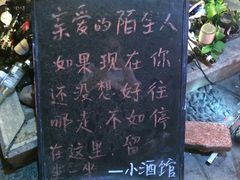 亲爱的陌生人
如果现在你
还没想好往
哪走,不如停
在这里,留一
坐一坐
—小酒馆